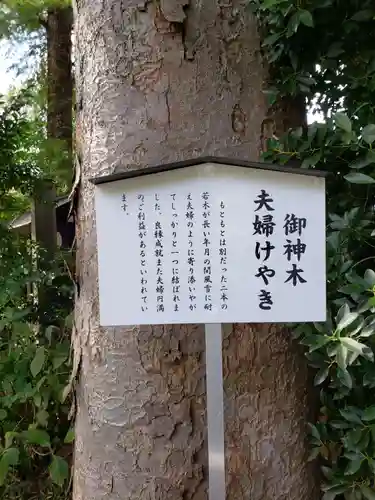 御神木
夫婦けやき
もともとは別だった二本の
若木が長い年月の間風雪に耐
え夫婦のように寄り添いやが
てしっかりと一つに結ばれま
した。良縁成就また夫婦円満
のご利益があるといわれてい
ます。